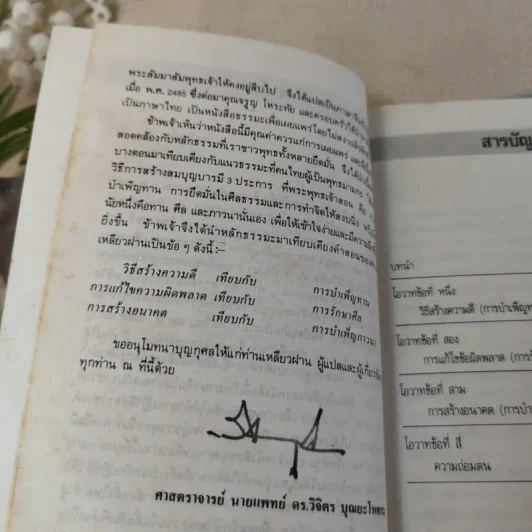 พระสัมมาสัมพุทธเจ้าให้คงอยู่สืบไป จึงได้แปลเป็นภาษา
เมื่อ พ.ศ. 2485 ซึ่งต่อมาคุณจรูญ โหระทัย และครอบครัวได้
เป็นภาษาไทย เป็นหนังสือธรรมะเพื่อเผยแพร่โดยไม่
ข้าพเจ้าเห็นว่าหนังสือนี้มีคุณค่าควรแก่การเผยแพร่
สอดคล้องกับหลักธรรมะที่เราชาวพุทธทั้งหลายยึดมั่น จึงได้
บางตอนมาเทียบเคียงกับแนวธรรมะที่คนไทยผู้เป็นพุทธมามกะ
วิธีการสร้างสมบุญบารมี 3 ประการ ที่พระพุทธเจ้าสอน คือ
บำเพ็ญทาน การยึดมั่นในศีลธรรมและการทำจิตให้สงบนิ่ง
นัยหนึ่งคือทาน ศีล และภาวนานั่นเอง เพื่อให้เข้าใจง่ายและมีความ
ยิ่งขึ้น ข้าพเจ้าจึงได้นำหลักธรรมะมาเทียบเคียงคำสอนของ
เหลียวฝานเป็นข้อ ๆ ดังนี้:–
วิธีสร้างความดี เทียบกับ การบำเพ็ญทาน
การแก้ไขความผิดพลาด เทียบกับ การรักษาศีล
การสร้างอนาคต เทียบกับ การบำเพ็ญภาวนา
ขออนุโมทนาบุญกุศลให้แก่ท่านเหลียวฝาน ผู้แปลและผู้เกี่ยว
ทุกท่าน ณ ที่นี้ด้วย
ศาสตราจารย์ นายแพทย์ ดร.วิจิตร บุณยะโหตระ
สารบัญ
บทนำ
โอวาทข้อที่ หนึ่ง
วิธีสร้างความดี (การบำเพ็ญ
โอวาทข้อที่ สอง
การแก้ไขข้อผิดพลาด (การ
โอวาทข้อที่ สาม
การสร้างอนาคต (การบำ
โอวาทข้อที่ สี่
ความถ่อมตน